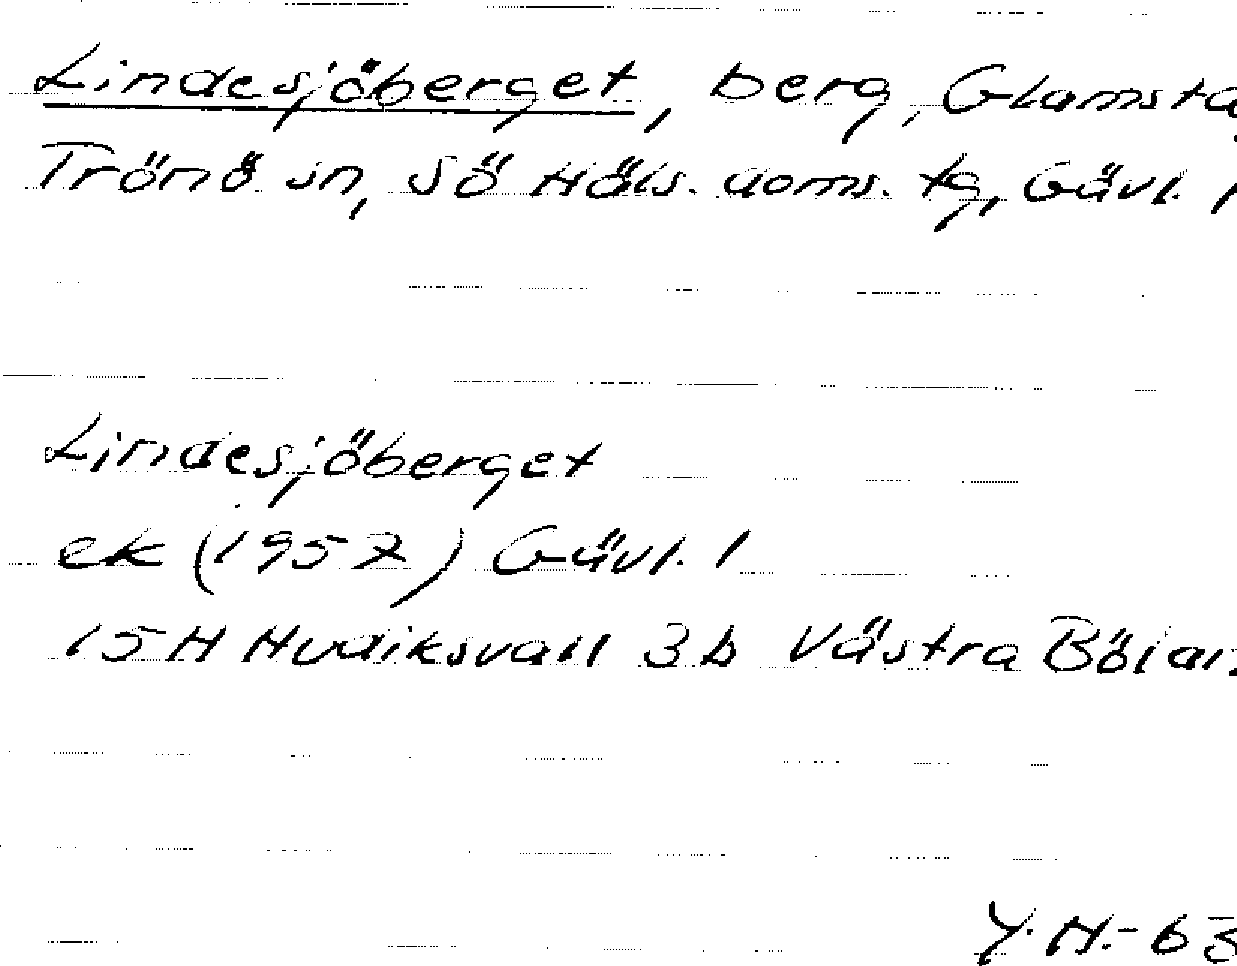 Lindesjöberget, berg, Glamsta
Trönö sn, Sö Häls. doms. tg, Gävl. l
Lindesjöberget
ek (1957) Gävl. l
15H Hudiksvall 3b Västra
Y.H.-63